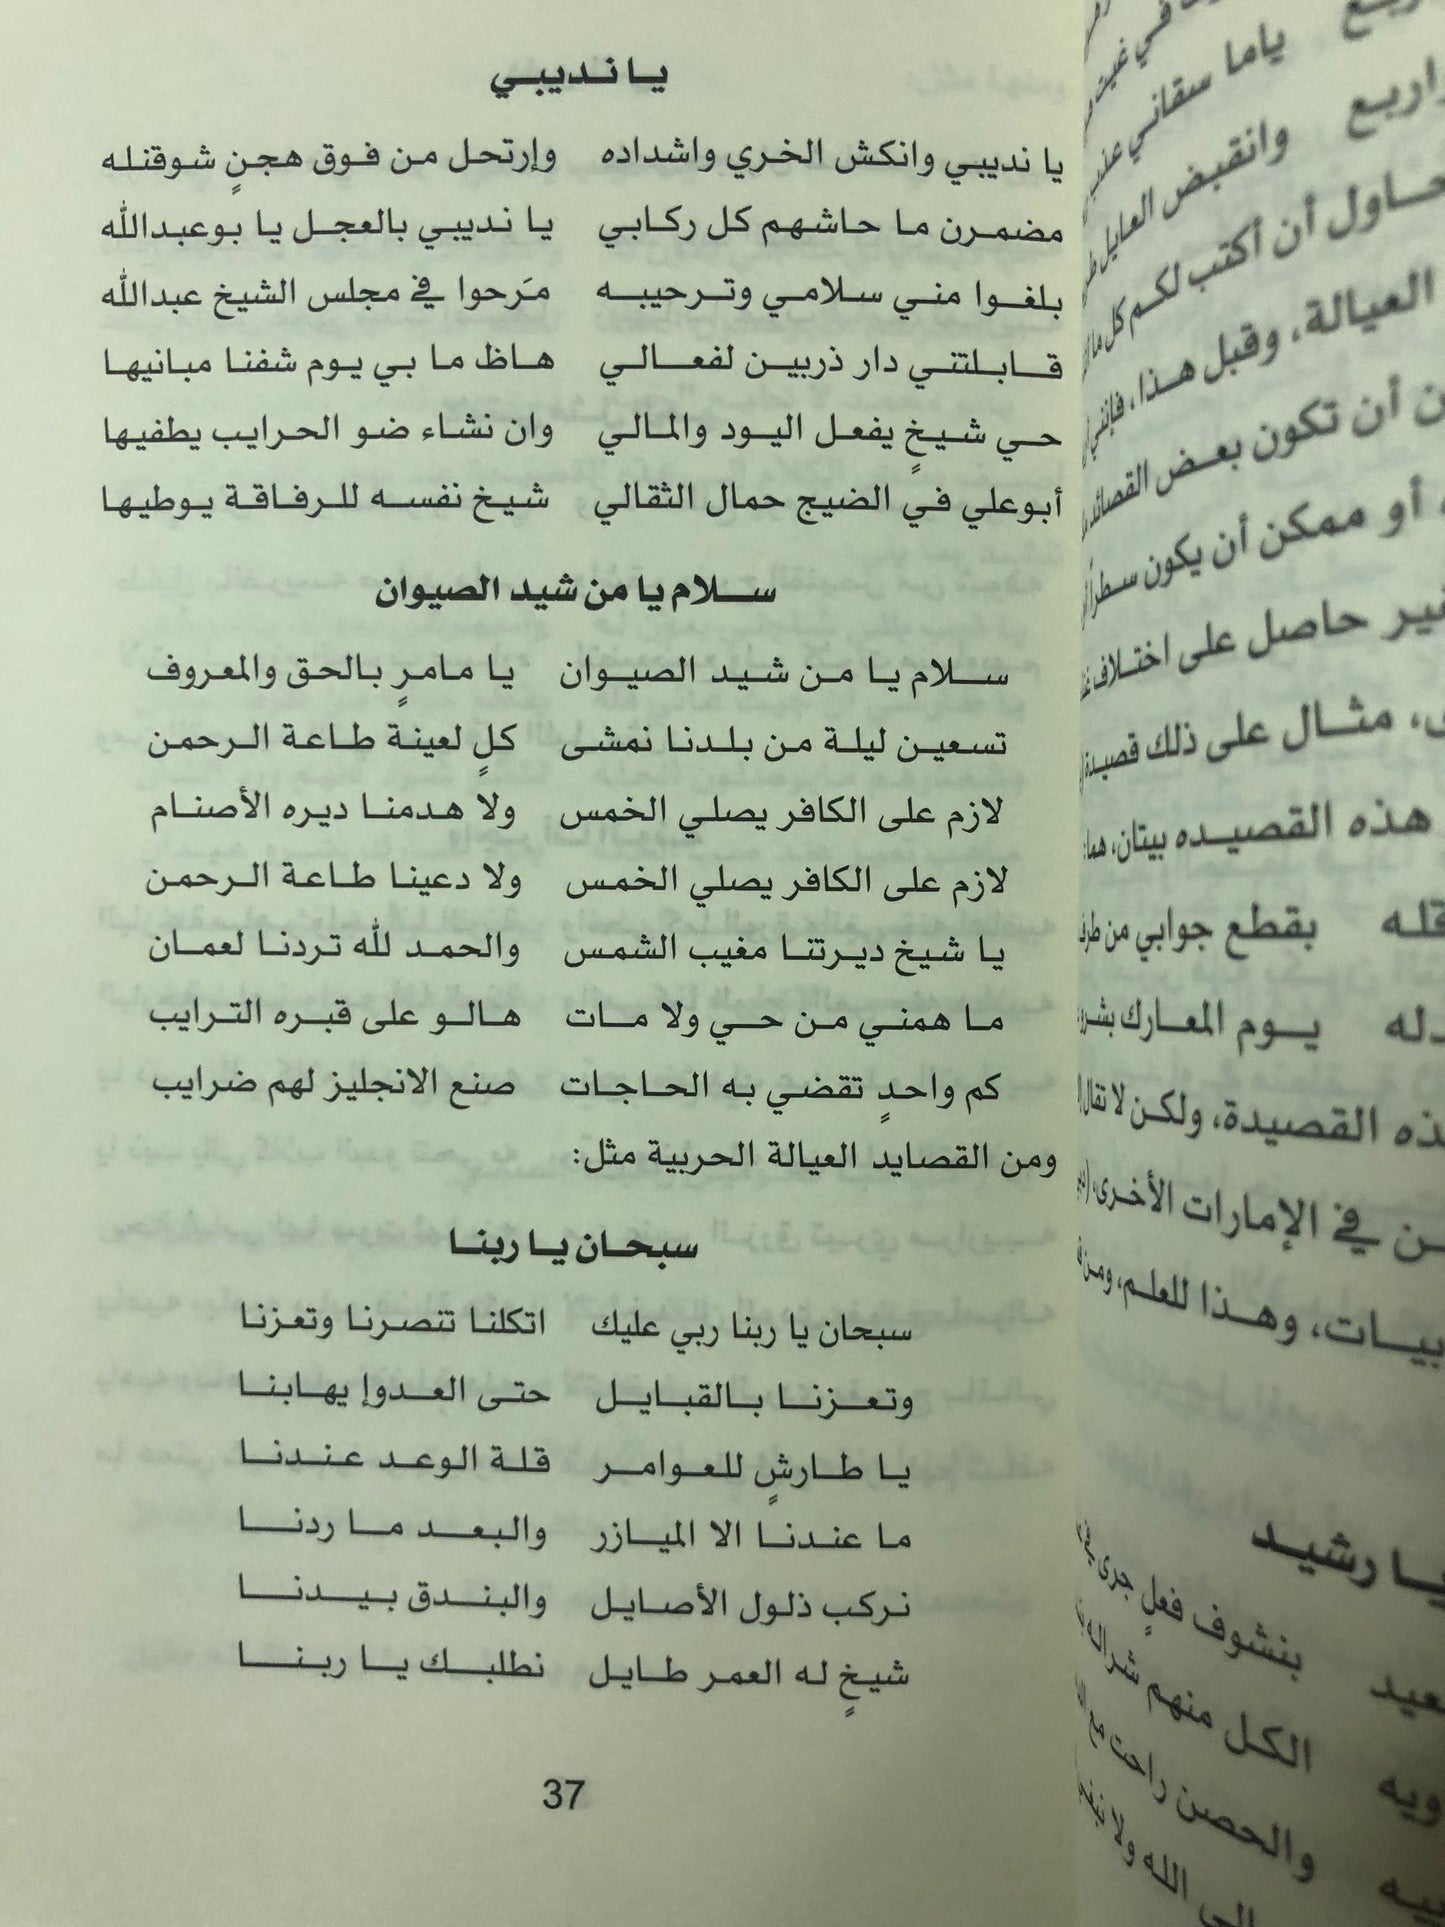 يا نديبي
يا نديبي وانكش الخري واشداده وإرتحل من فوق هجنٍ شوقنله
مضمرن ما حاشهم كل ركابي يا نديبي بالعجل يا بوعبدالله
بلغوا مني سلامي وترحيبه مَرحوا في مجلس الشيخ عبدالله
قابلتني دار ذربين لفعالي هاظ ما بي يوم شفنا مبانيها
حي شيخٍ يفعل اليود والمالي وان نشاء ضو الحرايب يطفيها
أبوعلي في الضيج حمال الثقالي شيخ نفسه للرفاقة يوطيها
سلام يا من شيد الصيوان
سلام يا من شيد الصيوان يا مامرٍ بالحق والمعروف
تسعين ليلة من بلدنا نمشى كلٍ لعينة طاعة الرحمن
لازم على الكافر يصلي الخمس ولا هدمنا ديره الأصنام
لازم على الكافر يصلي الخمس ولا دعينا طاعة الرحمن
يا شيخ ديرتنا مغيب الشمس والحمد لله تردنا لعمان
ما همني من حي ولا مات هالو على قبره الترايب
كم واحدٍ تقضي به الحاجات صنع الانجليز لهم ضرايب
ومن القصايد العيالة الحربية مثل:
سبحان يا ربنا
سبحان يا ربنا ربي عليك اتكلنا تنصرنا وتعزنا
وتعزنا بالقبايل حتى العدوإ يهابنا
يا طارشٍ للعوامر قلة الوعد عندنا
ما عندنا الا الميازر والبعد ما ردنا
نركب ذلول الأصايل والبندق بيدنا
شيخٍ له العمر طايل نطلبك يا ربنا
37
ياما سقاني
وانقبض العايل
حاول أن أكتب لكم كل
العيالة، وقبل هذا، فإنني
أن تكون بعض القصائد
أو ممكن أن يكون سطراً
حاصل على اختلاف
مثال على ذلك قصيدة
هذه القصيده بيتان، هما:
بقطع جوابي من
يوم المعارك
القصيدة، ولكن لا تقال
في الإمارات الأخرى،
وهذا للعلم، ومن
يا رشيد
بنشوف فعلٍ جرى
الكل منهم
والحصن راحت مع
الله ولا